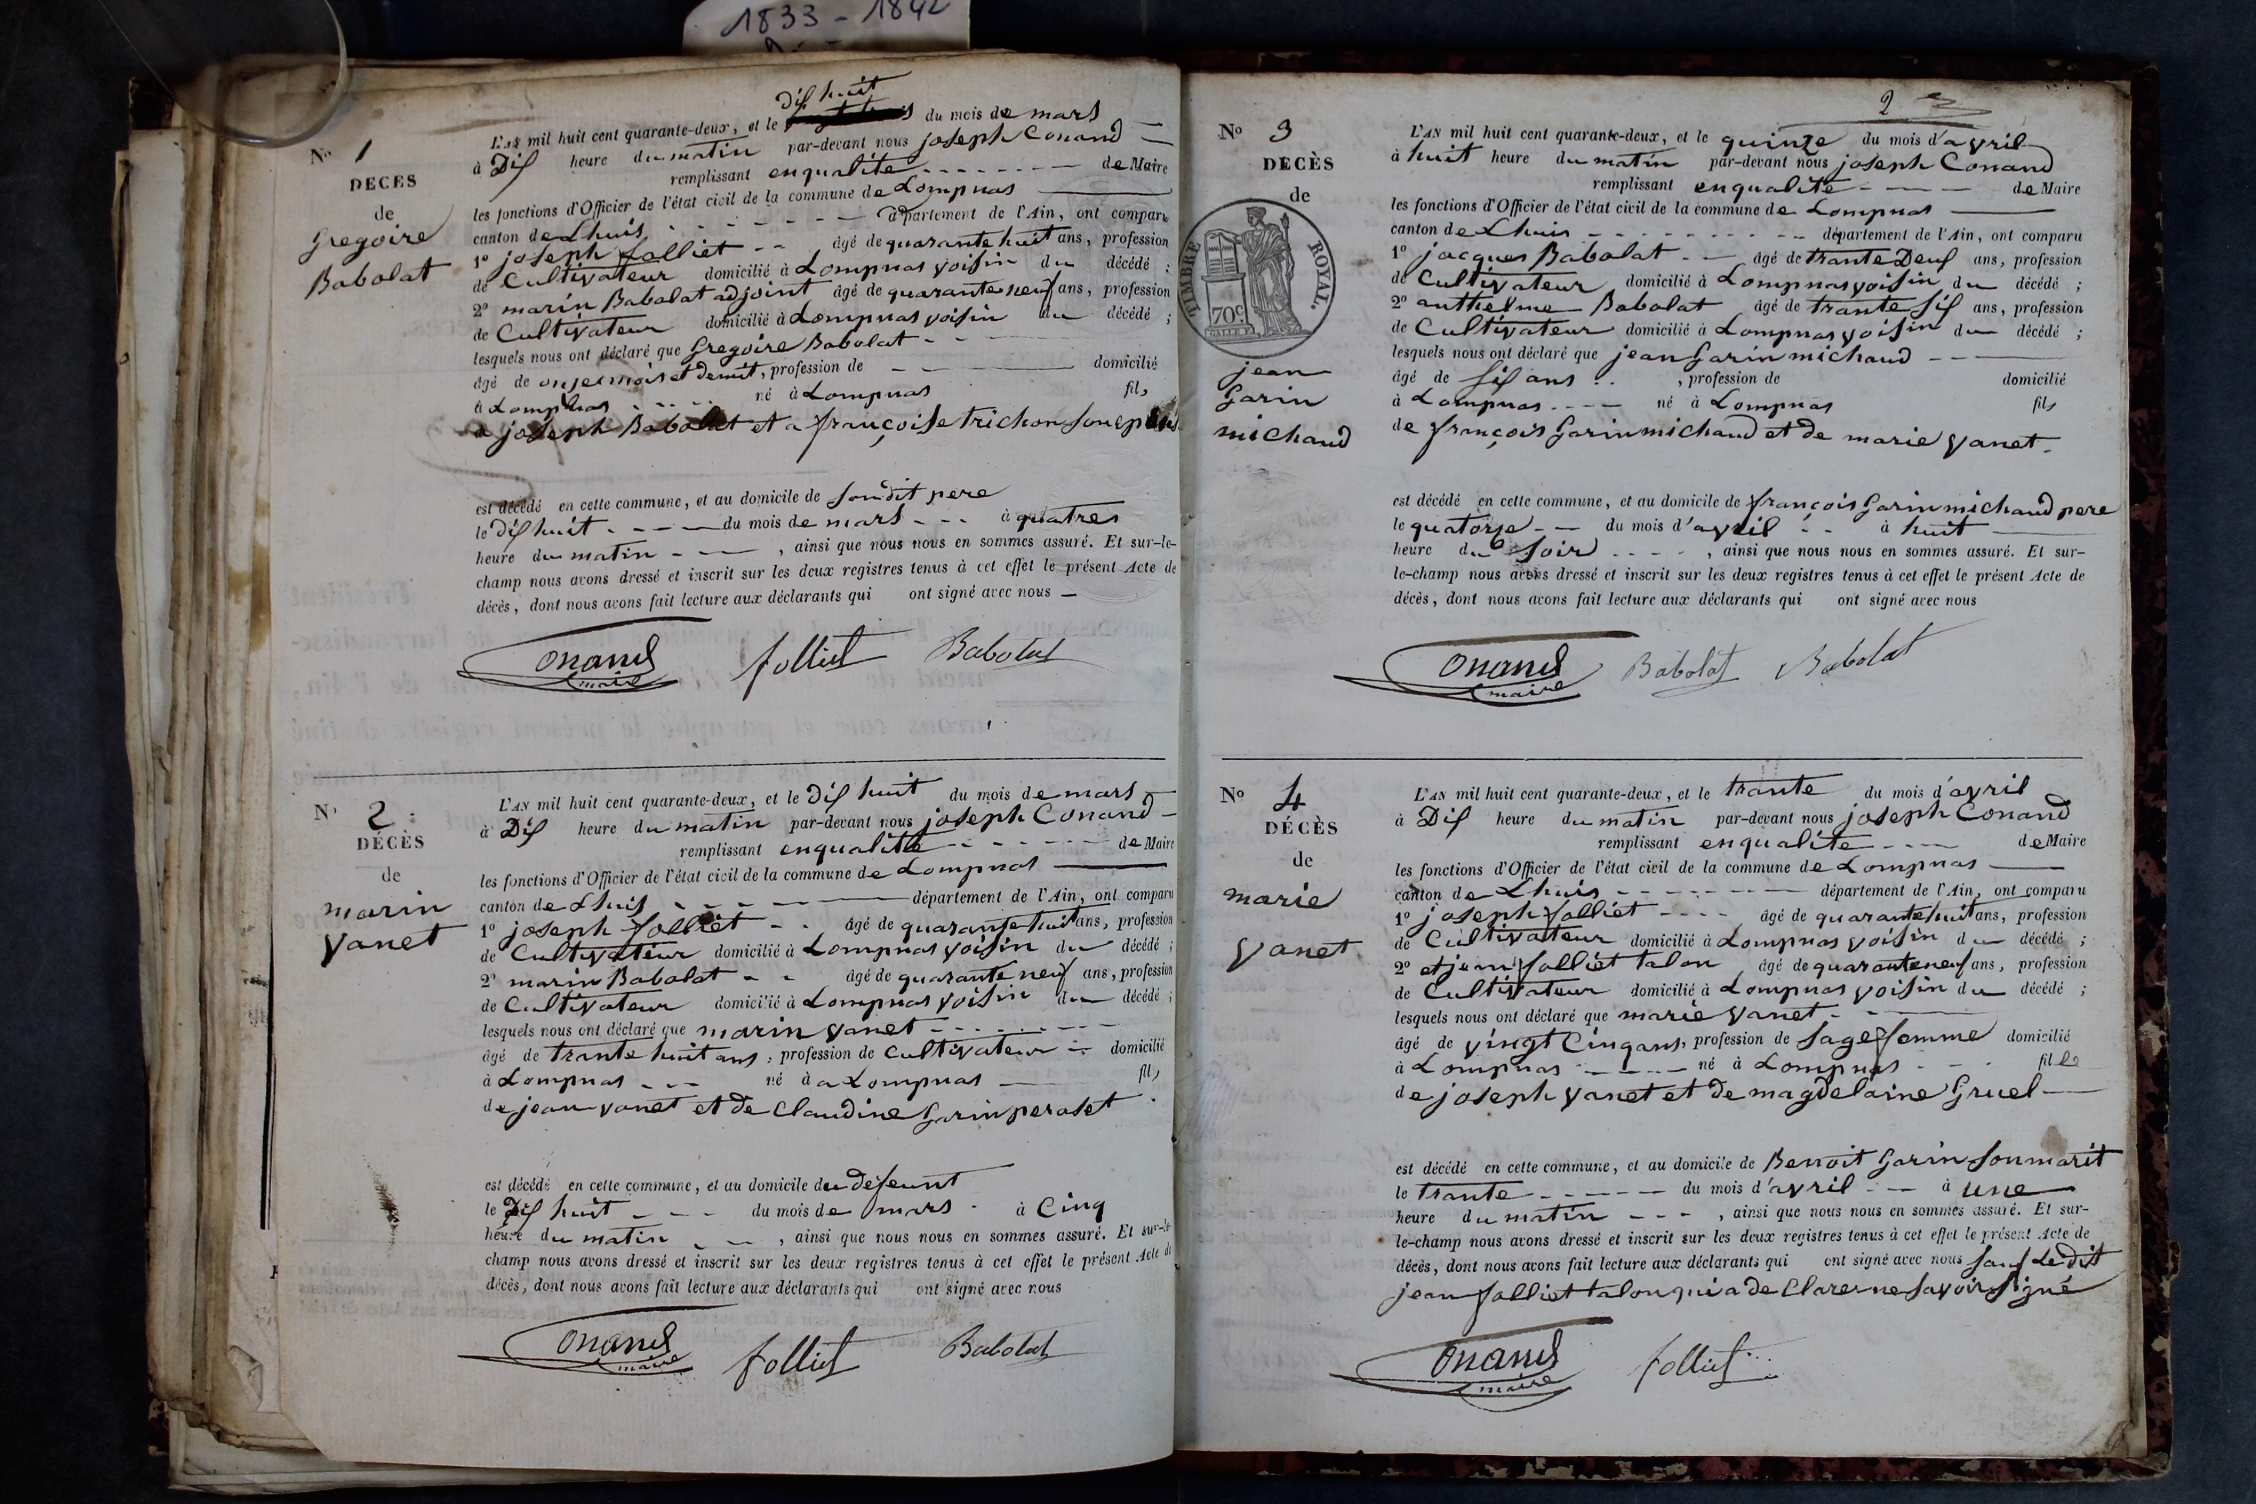 1833 - 1842
N° 1
DÉCÈS
de
Gregoire
Babolat
dix huit
L'AN mil huit cent quarante-deux, et le du mois de mars
à Dix heure du matin par-devant nous joseph Conand
remplissant enqualité de Maire
les fonctions d'Officier de l'état civil de la commune de Lompnas
canton de Lhuis département de l'Ain, ont comparu
1° joseph folliet âgé de quarante huit ans, profession
de Cultivateur domicilié à Lompnas voisin du décédé ;
2° marin Babolat adjoint âgé de quarante neuf ans, profession
de Cultivateur domicilié à Lompnas voisin du décédé ;
lesquels nous ont déclaré que Gregoire Babolat
âgé de onze mois et demit, profession de domicilié
à Lompnas né à Lompnas fils
a joseph Babolat et a françoise trichon son
est décédé en cette commune, et au domicile de son dit pere
le dix huit du mois de mars à quatres
heure du matin , ainsi que nous nous en sommes assuré. Et sur-le-
champ nous avons dressé et inscrit sur les deux registres tenus à cet effet le présent Acte de
décès, dont nous avons fait lecture aux déclarants qui ont signé avec nous
Conand maire folliet Babolat
N° 2
DÉCÈS
de
marin
vanet
L'AN mil huit cent quarante-deux, et le dix huit du mois de mars
à Dix heure du matin par-devant nous joseph Conand
remplissant enqualité de Maire
les fonctions d'Officier de l'état civil de la commune de Lompnas
canton de Lhuis département de l'Ain, ont comparu
1° joseph folliet âgé de quarante huit ans, profession
de Cultivateur domicilié à Lompnas voisin du décédé ;
2° marin Babolat âgé de quarante neuf ans, profession
de Cultivateur domicilié à Lompnas voisin du décédé ;
lesquels nous ont déclaré que marin vanet
âgé de trante huit ans, profession de Cultivateur domicilié
à Lompnas né à a Lompnas fils
de jean vanet et de Claudine Garin peroset
est décédé en cette commune, et au domicile du defeunt
le Dix huit du mois de mars à Cinq
heure du matin , ainsi que nous nous en sommes assuré. Et sur-le-
champ nous avons dressé et inscrit sur les deux registres tenus à cet effet le présent Acte de
décès, dont nous avons fait lecture aux déclarants qui ont signé avec nous
Conand maire folliet Babolat
2
N° 3
DÉCÈS
de
TIMBRE ROYAL.
70c
jean
Garin
michaud
L'AN mil huit cent quarante-deux, et le quinze du mois d'avril
à huit heure du matin par-devant nous joseph Conand
remplissant enqualité de Maire
les fonctions d'Officier de l'état civil de la commune de Lompnas
canton de Lhuis département de l'Ain, ont comparu
1° jacques Babolat âgé de trante Deux ans, profession
de Cultivateur domicilié à Lompnas voisin du décédé ;
2° anthelme Babolat âgé de trante six ans, profession
de Cultivateur domicilié à Lompnas voisin du décédé ;
lesquels nous ont déclaré que jean Garin michaud
âgé de six ans , profession de domicilié
à Lompnas né à Lompnas fils
de françois Garin michaud et de marie vanet
est décédé en cette commune, et au domicile de françois Garin michaud pere
le quatorse du mois d'avril à huit
heure du soir , ainsi que nous nous en sommes assuré. Et sur-
le-champ nous avons dressé et inscrit sur les deux registres tenus à cet effet le présent Acte de
décès, dont nous avons fait lecture aux déclarants qui ont signé avec nous
Conand maire Babolat Babolat
N° 4
DÉCÈS
de
marie
vanet
L'AN mil huit cent quarante-deux, et le trante du mois d'avril
à Dix heure du matin par-devant nous joseph Conand
remplissant enqualité de Maire
les fonctions d'Officier de l'état civil de la commune de Lompnas
canton de Lhuis département de l'Ain, ont comparu
1° joseph folliet âgé de quarante huit ans, profession
de Cultivateur domicilié à Lompnas voisin du décédé ;
2° et jean folliet talon âgé de quarante neuf ans, profession
de Cultivateur domicilié à Lompnas voisin du décédé ;
lesquels nous ont déclaré que marie vanet
âgé de vingt Cinq ans, profession de sage femme domicilié
à Lompnas né à Lompnas fille
de joseph vanet et de magdelaine Gruel
est décédé en cette commune, et au domicile de Benoit Garin son marit
le trante du mois d'avril à une
heure du matin , ainsi que nous nous en sommes assuré. Et sur-
le-champ nous avons dressé et inscrit sur les deux registres tenus à cet effet le présent Acte de
décès, dont nous avons fait lecture aux déclarants qui ont signé avec nous sauf Ledit
jean folliet talon qui a de Clarer ne savoir signé
Conand maire folliet